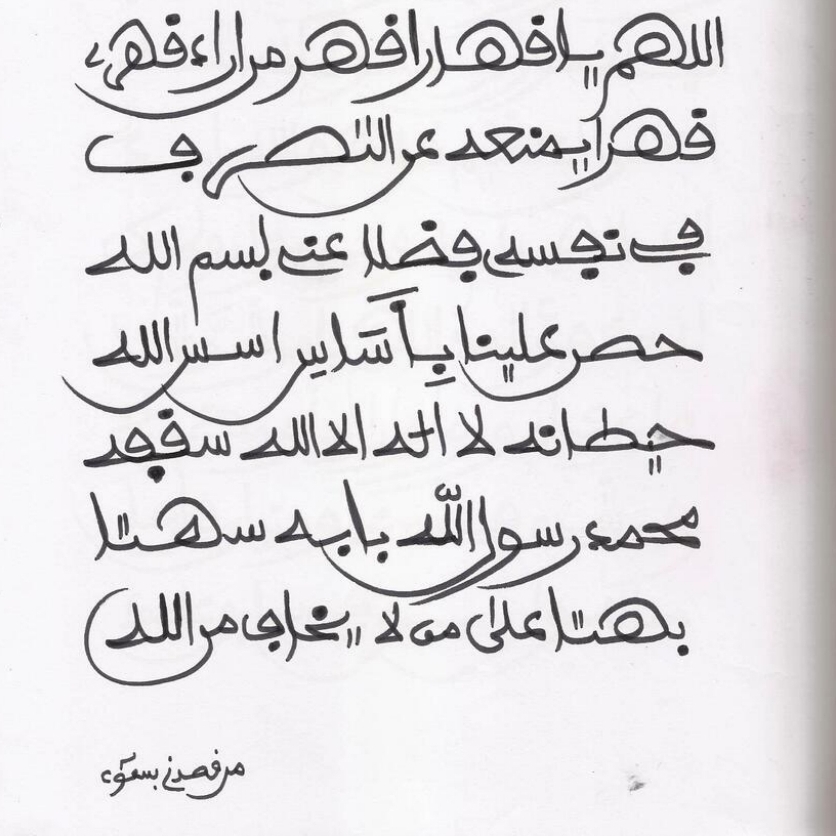 اللهم يا قهار اقهر من اراد قهري
قهرا يمنعه عن التصرف
في نفسه فضلا عني بسم الله
حصن علينا بِأَسَاسِ اسس الله
حيطانه لا اله الا الله سقفه
محمد رسول اللّه بابه سهتا
بهتا على من لا يخاف من الله
من قصدني بسوء